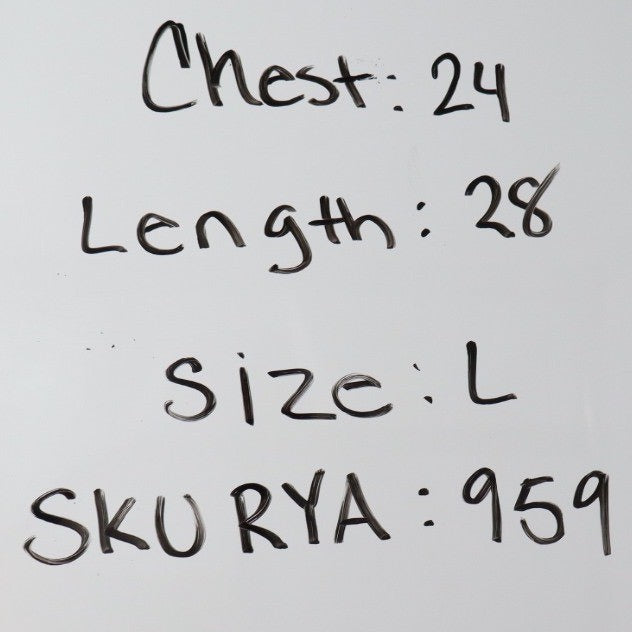 Chest: 24
Length: 28
Size: L
SKU RYA: 959